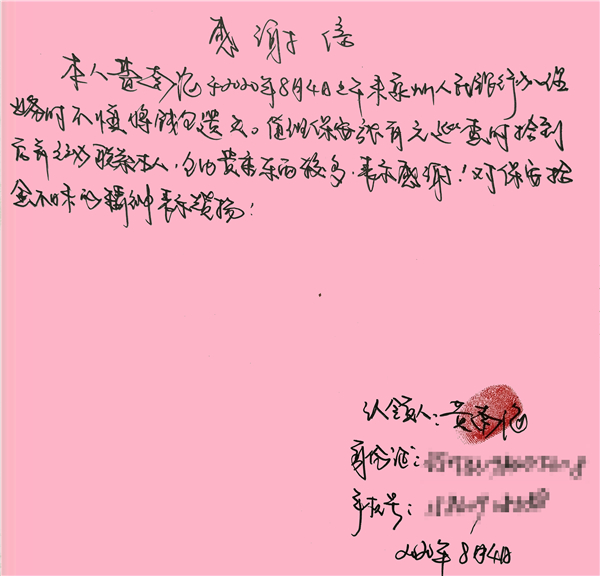 感谢信
本人黄于2020年8月4日上午来永州人民银行办
业务时不慎将钱包遗失。值班保安张有元巡查时拾到
后来联系本人,包内贵重东西较多,表示感谢!对保安拾
金不昧的精神表示赞扬!
认领人:黄
身份证:
手机号:
2020年8月4日